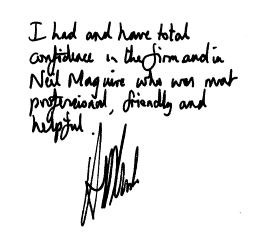 I had and have total
confidence in the firm and in
Neil Maguire who was most
professional, friendly and
helpful.